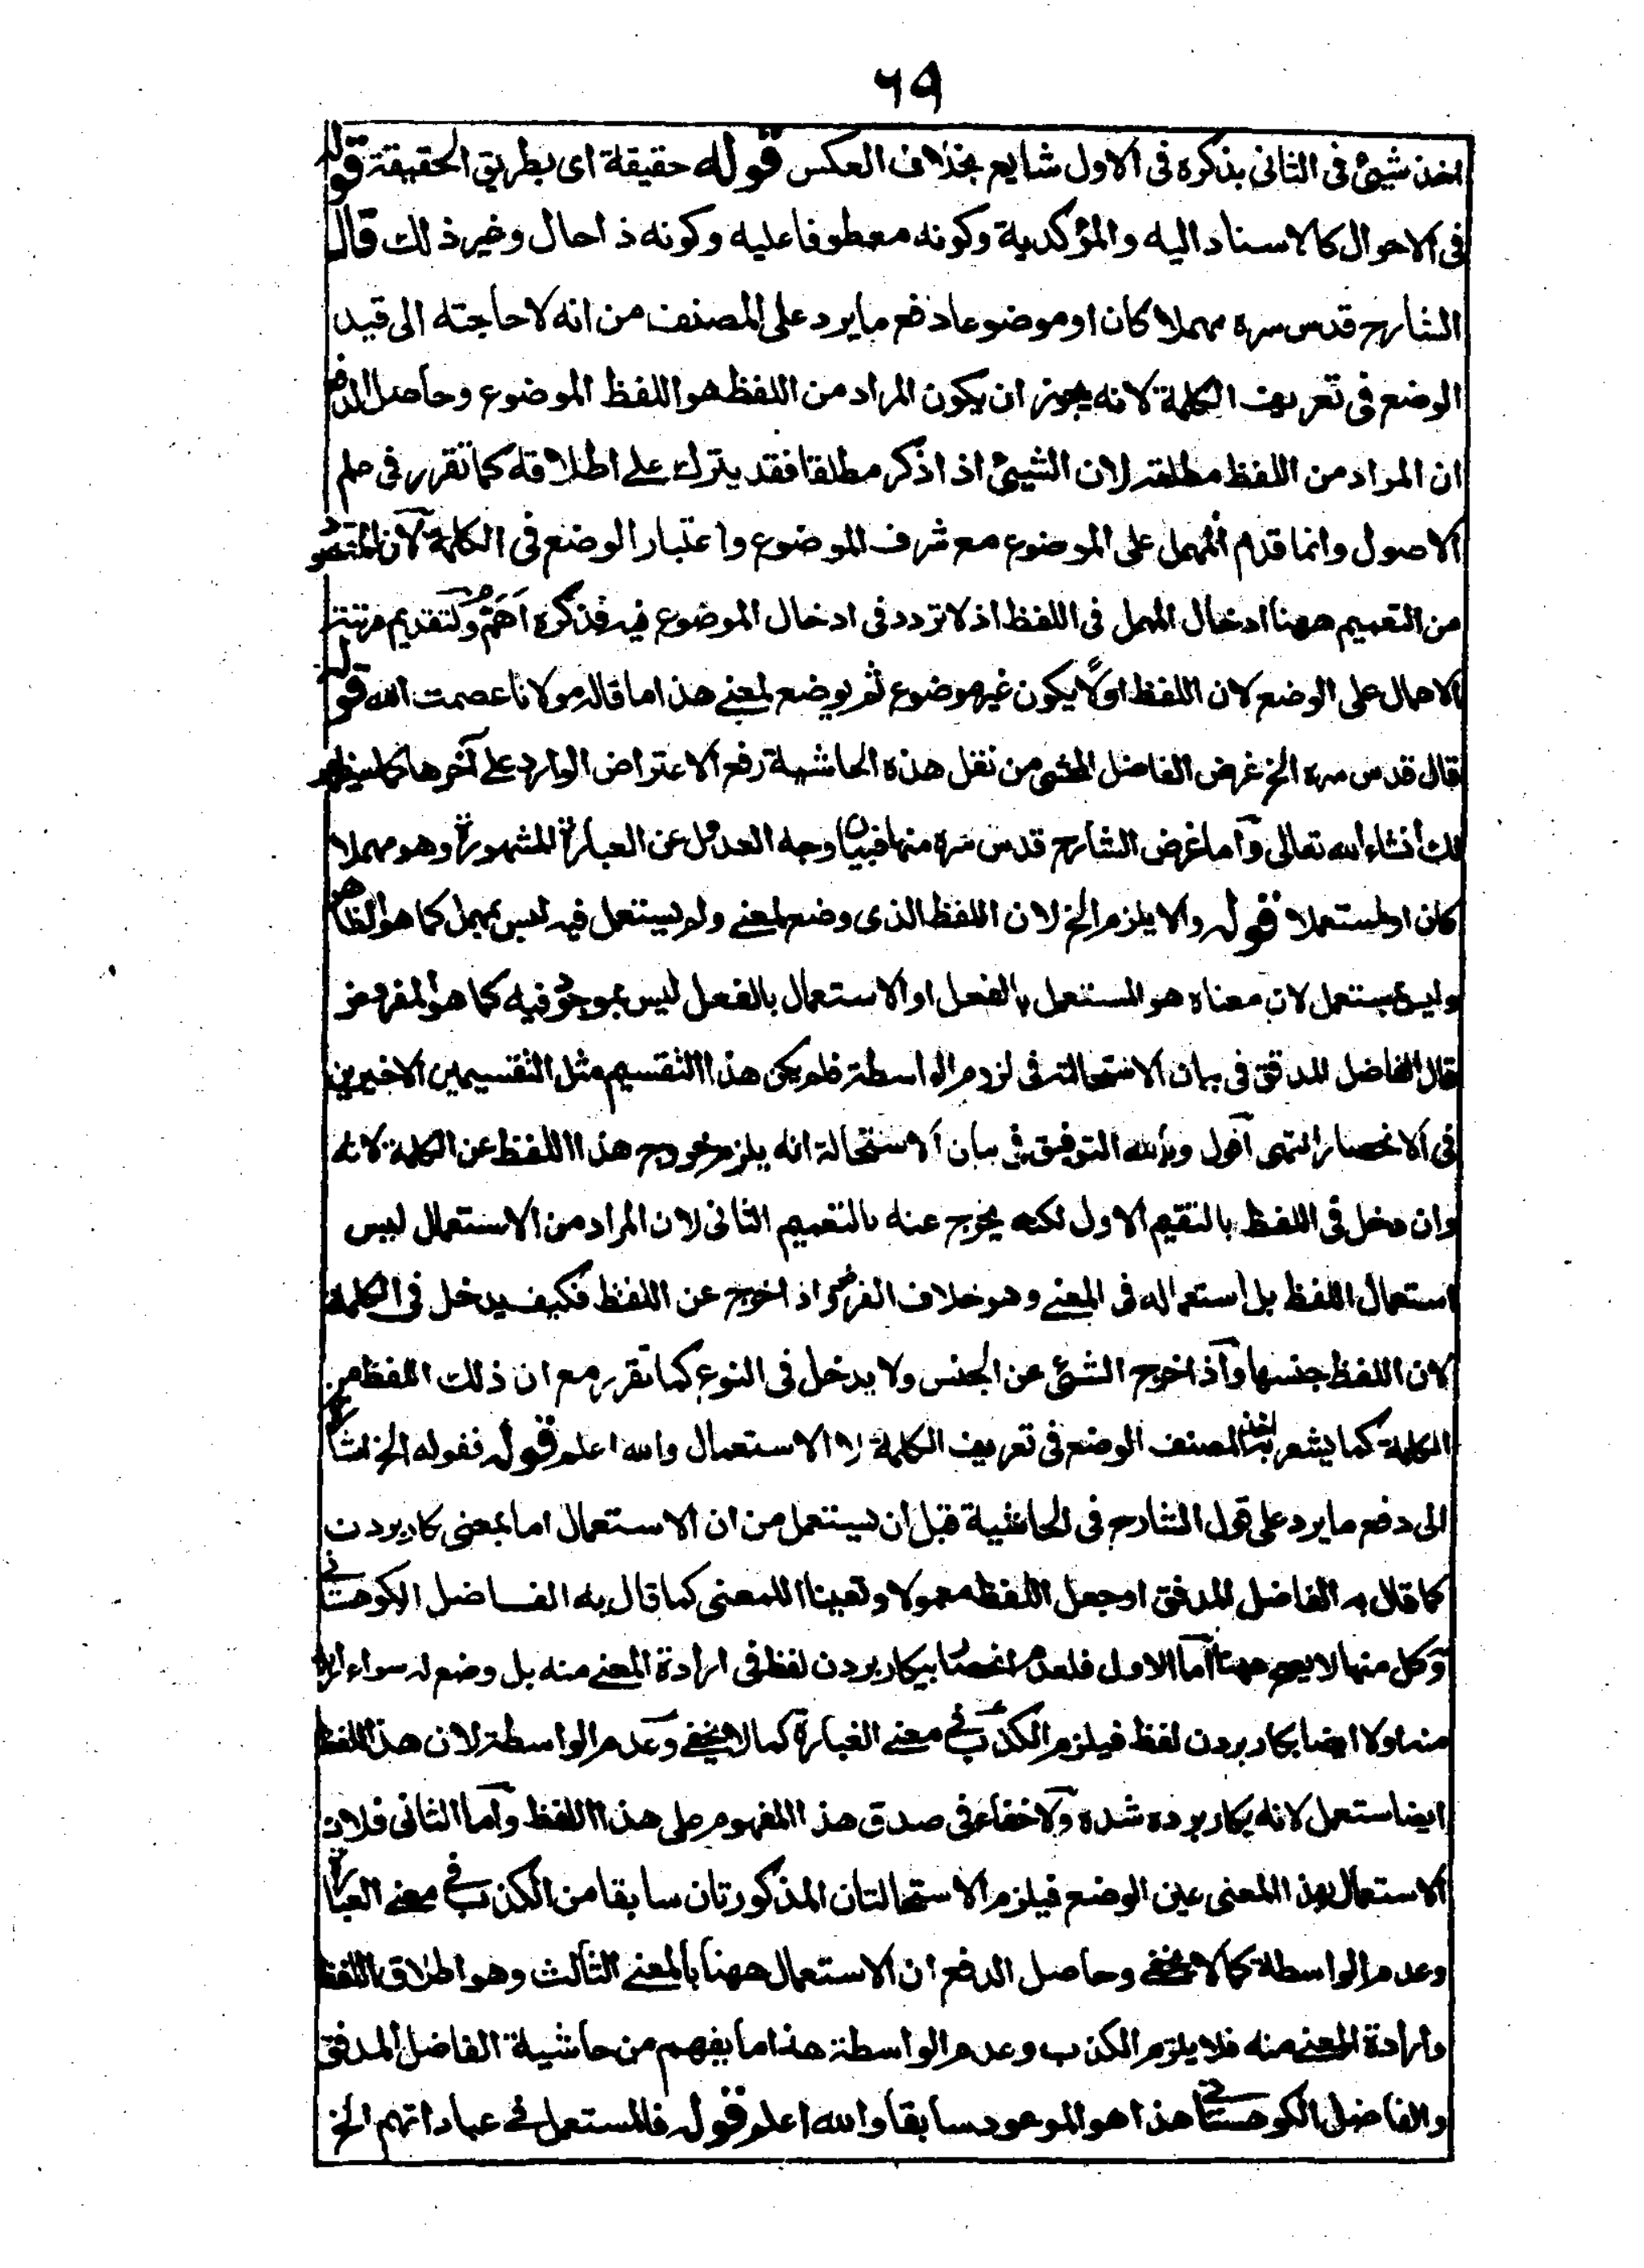 ٦٩
اخذ شيئ فى الثانى بذكره فى الاول شايع بخلاف العكس قوله حقيقة اى بطريق الحقيقة قوله
فى الاحوال كالاسناد اليه والمؤكدية وكونه معطوفا عليه وكونه ذا حال وغير ذلك قال
الشارح قدس سره مهملا كان او موضوعا دفع ما يرد على المصنف من انه لا حاجته الى قيد
الوضع فى تعريف الكلمة لانه يجوز ان يكون المراد من اللفظ هو اللفظ الموضوع وحاصل الدفع
ان المراد من اللفظ مطلقه لان الشيئ اذا ذكر مطلقا فقد يترك على اطلاقه كما تقرر فى علم
الاصول وانما قدم المهمل على الموضوع مع شرف الموضوع واعتبار الوضع فى الكلمة لان المقصو
من التعميم ههنا ادخال المهمل فى اللفظ اذ لا تردد فى ادخال الموضوع فيه فذكره اهم ولتقديم مرتبة
الاهمال على الوضع لان اللفظ اولا يكون غير موضوع ثم يوضع لمعنے هذا ما قاله مولانا عصمت الله قوله
قال قدس سره الخ غرض الفاضل المحشى من نقل هذه الحاشية رفع الاعتراض الوارد على آخرها كما سيظهر
لك انشاء الله تعالى واما غرض الشارح قدس سره منها فبيان وجه العدول عن العبارة المشهورة وهو مهملا
كان او مستعملا قوله والا يلزم الخ لان اللفظ الذى وضع لمعنے ولم يستعمل فيه ليس بمهمل كما هو الظاهر
وليس بمستعمل لان معناه هو المستعمل بالفعل او الاستعمال بالفعل ليس بموجود فيه كما هو المفروض
قال الفاضل المدقق فى بيان الاستحالته فى لزوم الواسطة فلم يكن هذا التقسيم مثل التقسيمين الاخيرين
فى الانحصار انتهى اقول وبالله التوفيق فى بيان الاستحالة انه يلزم خروج هذا اللفظ عن الكلمة لانه
وان دخل فى اللفظ بالتقيم الاول لكنه يخرج عنه بالتعميم الثانى لان المراد من الاستعمال ليس
استعمال اللفظ بل استعماله فى المعنے وهو خلاف الفرض واذا خرج عن اللفظ فكيف يدخل فى الكلمة
لان اللفظ جنسها واذا خرج الشئ عن الجنس ولا يدخل فى النوع كما تقرر مع ان ذلك اللفظ من
الكلمة كما يشعر به اخذ المصنف الوضع فى تعريف الكلمة لا الاستعمال والله اعلم قوله فقوله الخ اشارة
الى دفع ما يرد على قول الشارح فى الحاشية قبل ان يستعمل من ان الاستعمال اما بمعنى كار بردن
كما قال به الفاضل المدقق او جعل اللفظ معمولا وتعينا للمعنى كما قال به الفاضل الكوهستانى
وكل منهما لا يصح ههنا اما الاول فلعدم اختصا بيكار بردن لفظ فى ارادة المعنے منه بل وضع له سواء اريد
منه اولا ايضا بكار بردن لفظ فيلزم الكذب فے معنے العبارة كما لا يخفے وعدم الواسطة لان هذا اللفظ
ايضا ستعمل لانه بكار برده شده ولا خفاء فى صدق هذا المفهوم على هذا اللفظ واما الثانى فلان
الاستعمال بهذا المعنى عين الوضع فيلزم الاستحالتان المذكورتان سابقا من الكذب فے معنے العبارة
وعدم الواسطة كما لا يخفے وحاصل الدفع ان الاستعمال ههنا بالمعنے الثالث وهو اطلاق اللفظ
وارادة المعنے منه فلا يلزم الكذب وعدم الواسطة هذا ما يفهم من حاشية الفاضل المدقق
والفاضل الكوهستانى هذا هو الموعود سابقا والله اعلم قوله فالمستعمل فے عباداتهم الخ